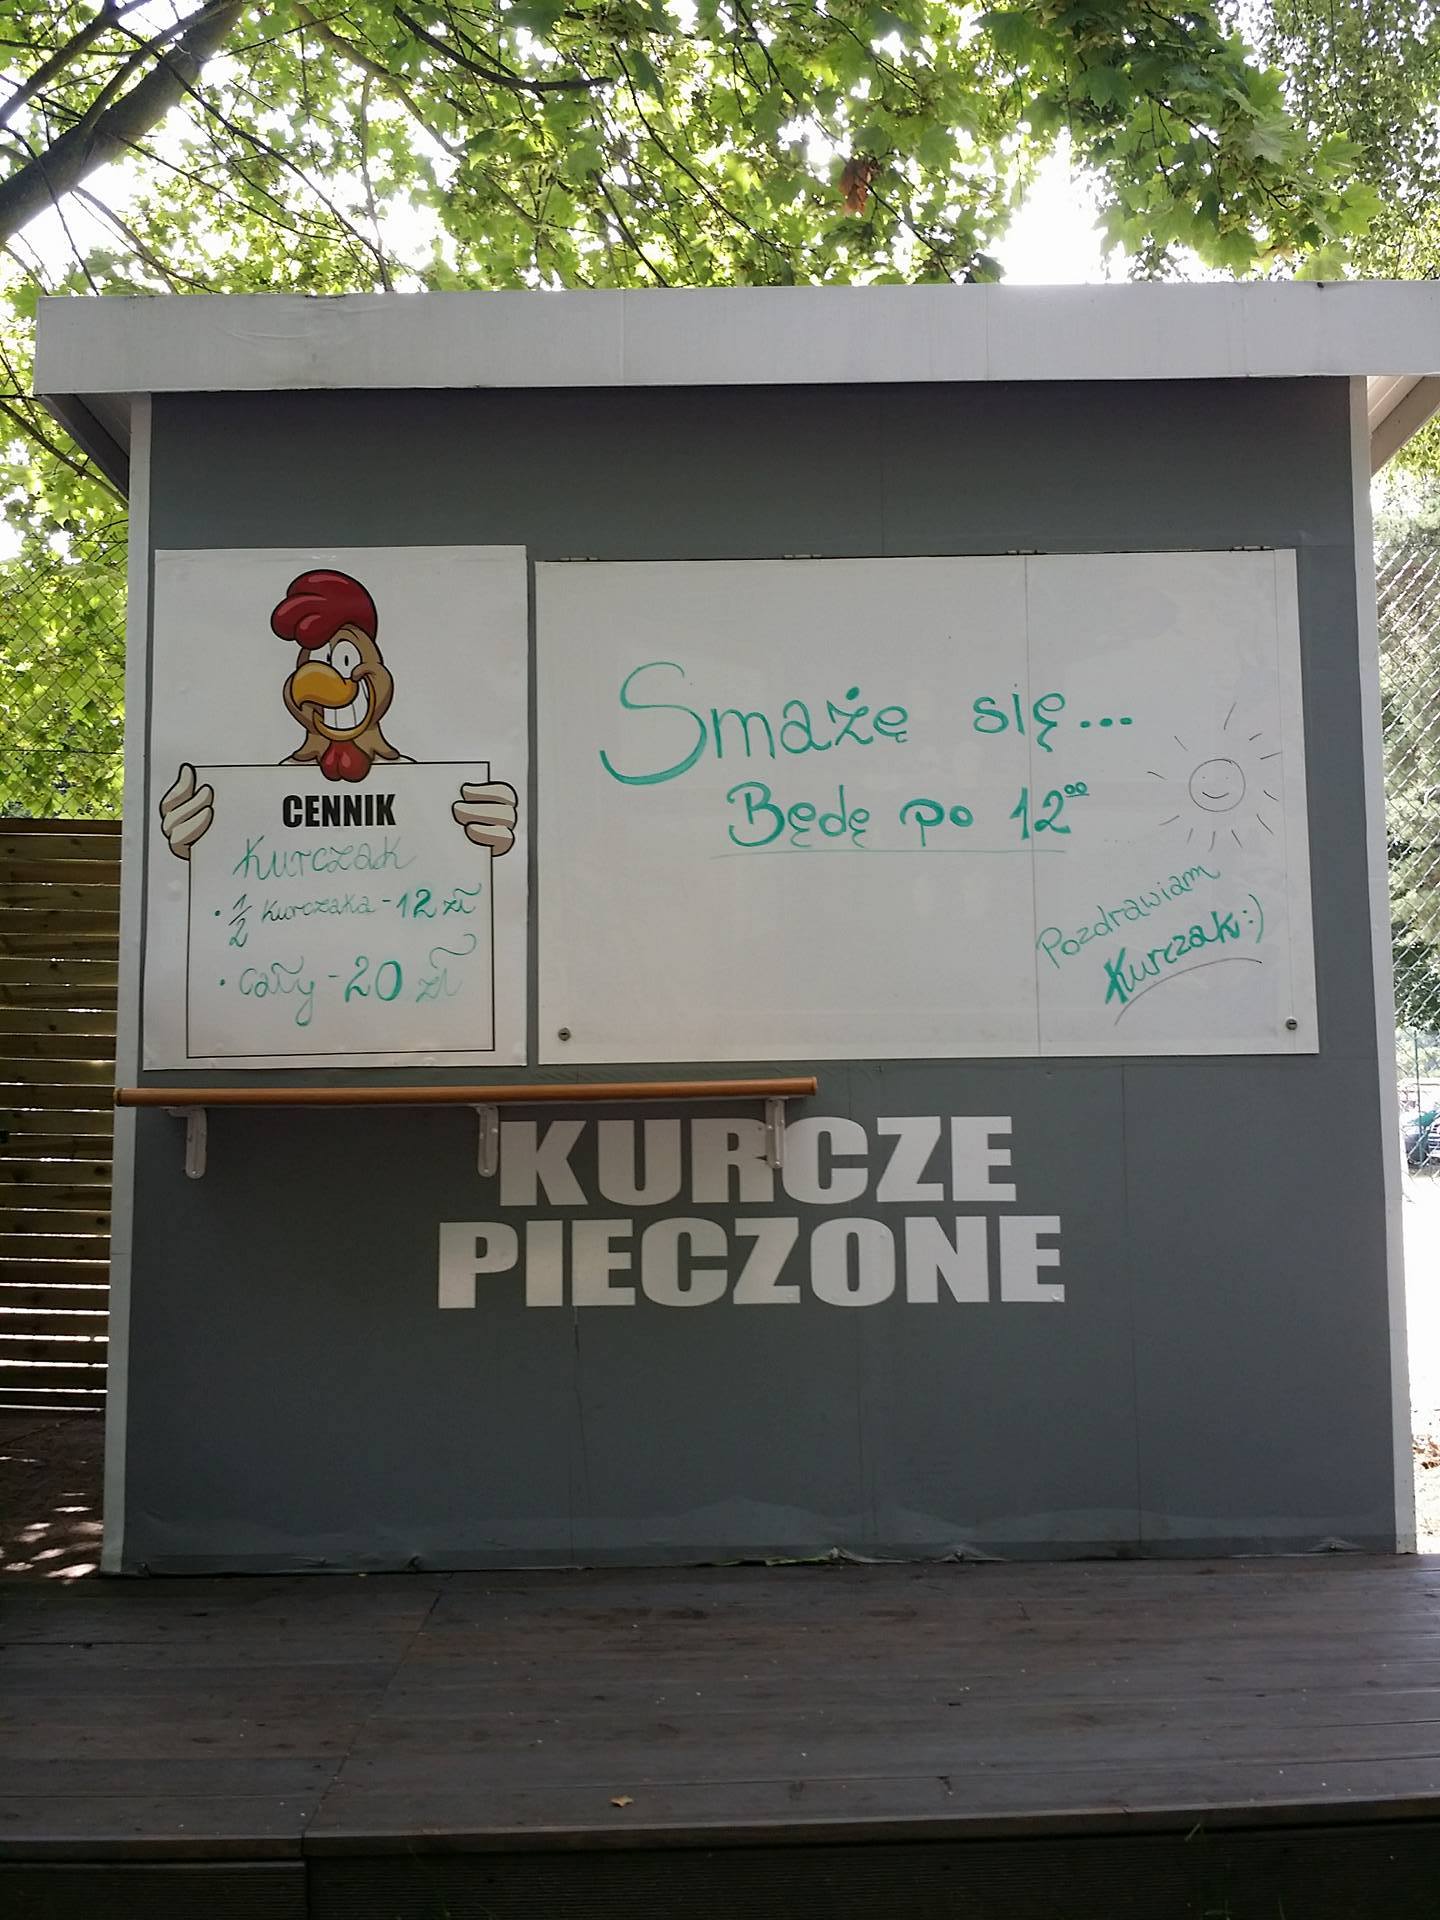 CENNIK
Kurczak
• 1/2 kurczaka - 12 zł
• cały - 20 zł
Smażę się...
Będę po 12⁰⁰
Pozdrawiam
Kurczak :)
KURCZE
PIECZONE